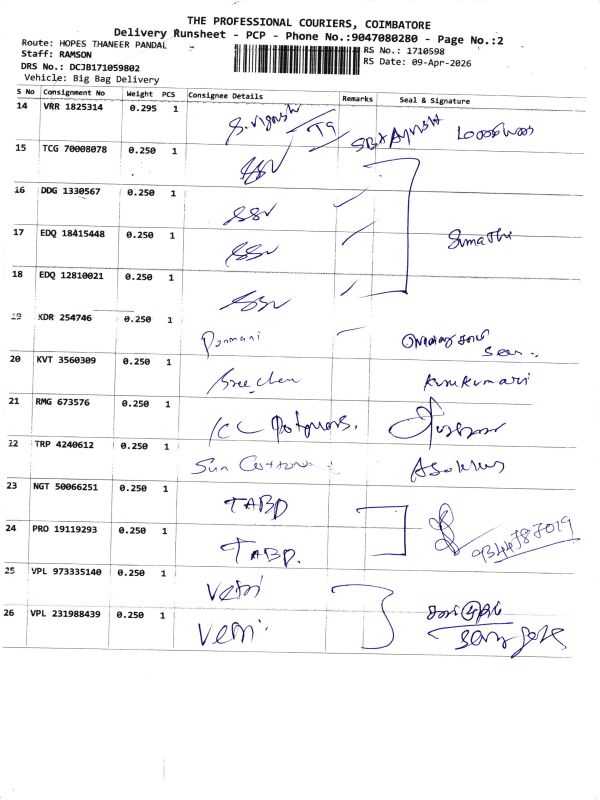 THE PROFESSIONAL COURIERS, COIMBATORE
Delivery Runsheet - PCP - Phone No.:9047080280 - Page No.:2
Route: HOPES THANEER PANDAL
RS No.: 1710598
Staff: RAMSON
RS Date: 09-Apr-2026
DRS No.: DCJB171059802
Vehicle: Big Bag Delivery
S No Consignment No Weight PCS Consignee Details Remarks Seal & Signature
14 VRR 1825314 0.295 1
15 TCG 70008078 0.250 1 SSV
16 DDG 1330567 0.250 1 SSV
17 EDQ 18415448 0.250 1 SSV Sumathi
18 EDQ 12810021 0.250 1 SSV
19 KDR 254746 0.250 1 Ponmani
20 KVT 3560309 0.250 1
21 RMG 673576 0.250 1
22 TRP 4240612 0.250 1 Sun
23 NGT 50066251 0.250 1 TABD
24 PRO 19119293 0.250 1 TABD. 9344787019
25 VPL 973335140 0.250 1 Vetri
26 VPL 231988439 0.250 1 Vetri